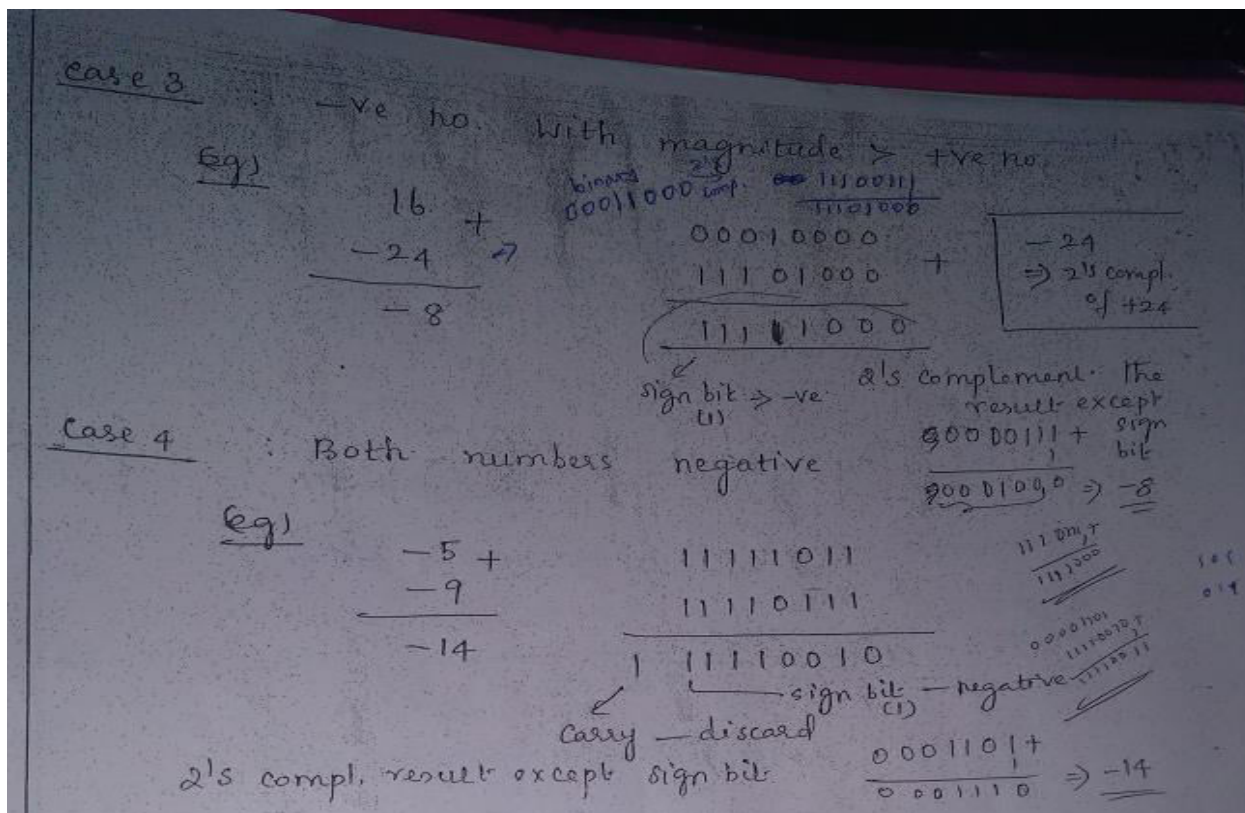 Case 3 -ve no. With magnitude > +ve no.
Eg) binary 2's
00011000 comp. 11100111
11101000
16 + 00010000
-24 ⇒ 11101000 +
-8 11111000
-24
⇒ 2's compl.
of +24
sign bit ⇒ -ve
(1)
2's complement. The
result except
sign
bit
00000111 +
1
00001000 ⇒ -8
Case 4 : Both numbers negative
Eg)
-5 + 11111011
-9 11110111
-14 1 11110010
sign bit - negative
(1)
Carry - discard
2's compl. result except sign bit
0001101 +
1
0001110 ⇒ -14